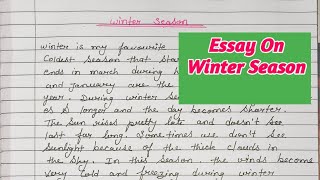 Winter Season
Essay On
Winter Season
winter is my favourite
coldest season that
ends in march during
and January are the
year. During winter
es is longer and the day becomes shorter.
The sun rises pretty late and doesn't
last for long. Sometimes we don't see
sunlight because of the thick clouds in
the sky. In this season, the winds become
very cold and freezing during winter